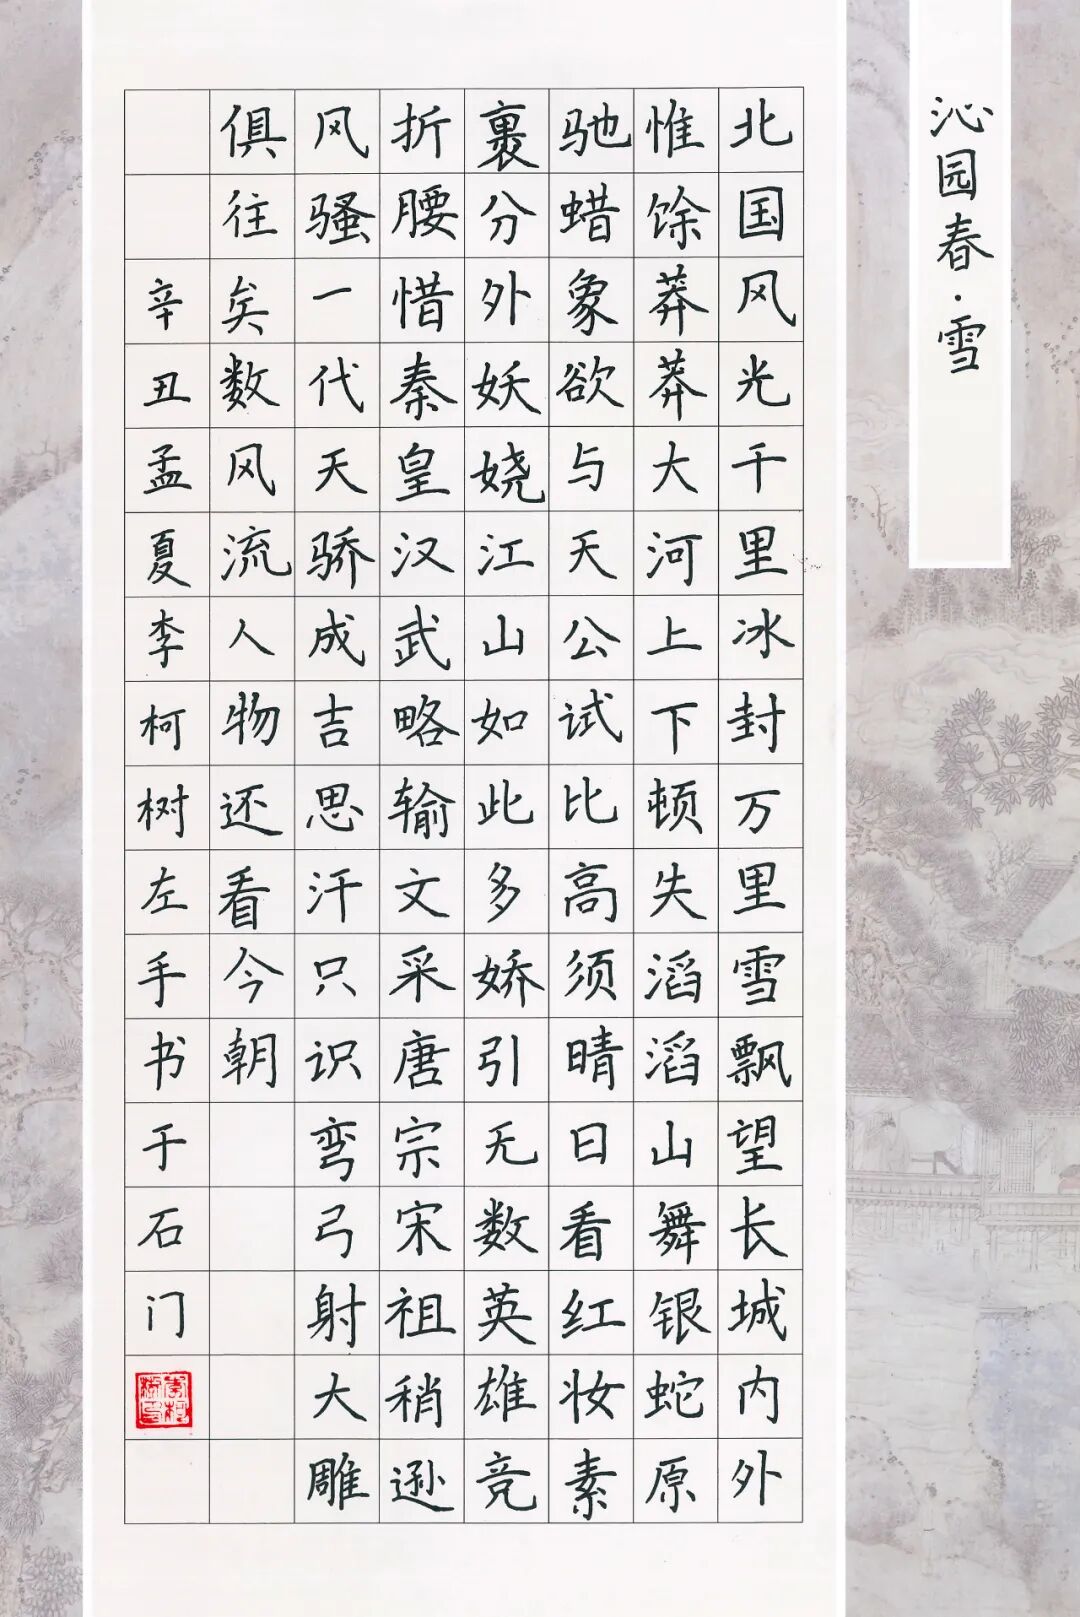 沁园春·雪
北国风光千里冰封万里雪飘望长城内外
惟馀莽莽大河上下顿失滔滔山舞银蛇原
驰蜡象欲与天公试比高须晴日看红妆素
裹分外妖娆江山如此多娇引无数英雄竞
折腰惜秦皇汉武略输文采唐宗宋祖稍逊
风骚一代天骄成吉思汗只识弯弓射大雕
俱往矣数风流人物还看今朝
辛丑孟夏李柯树左手书于石门